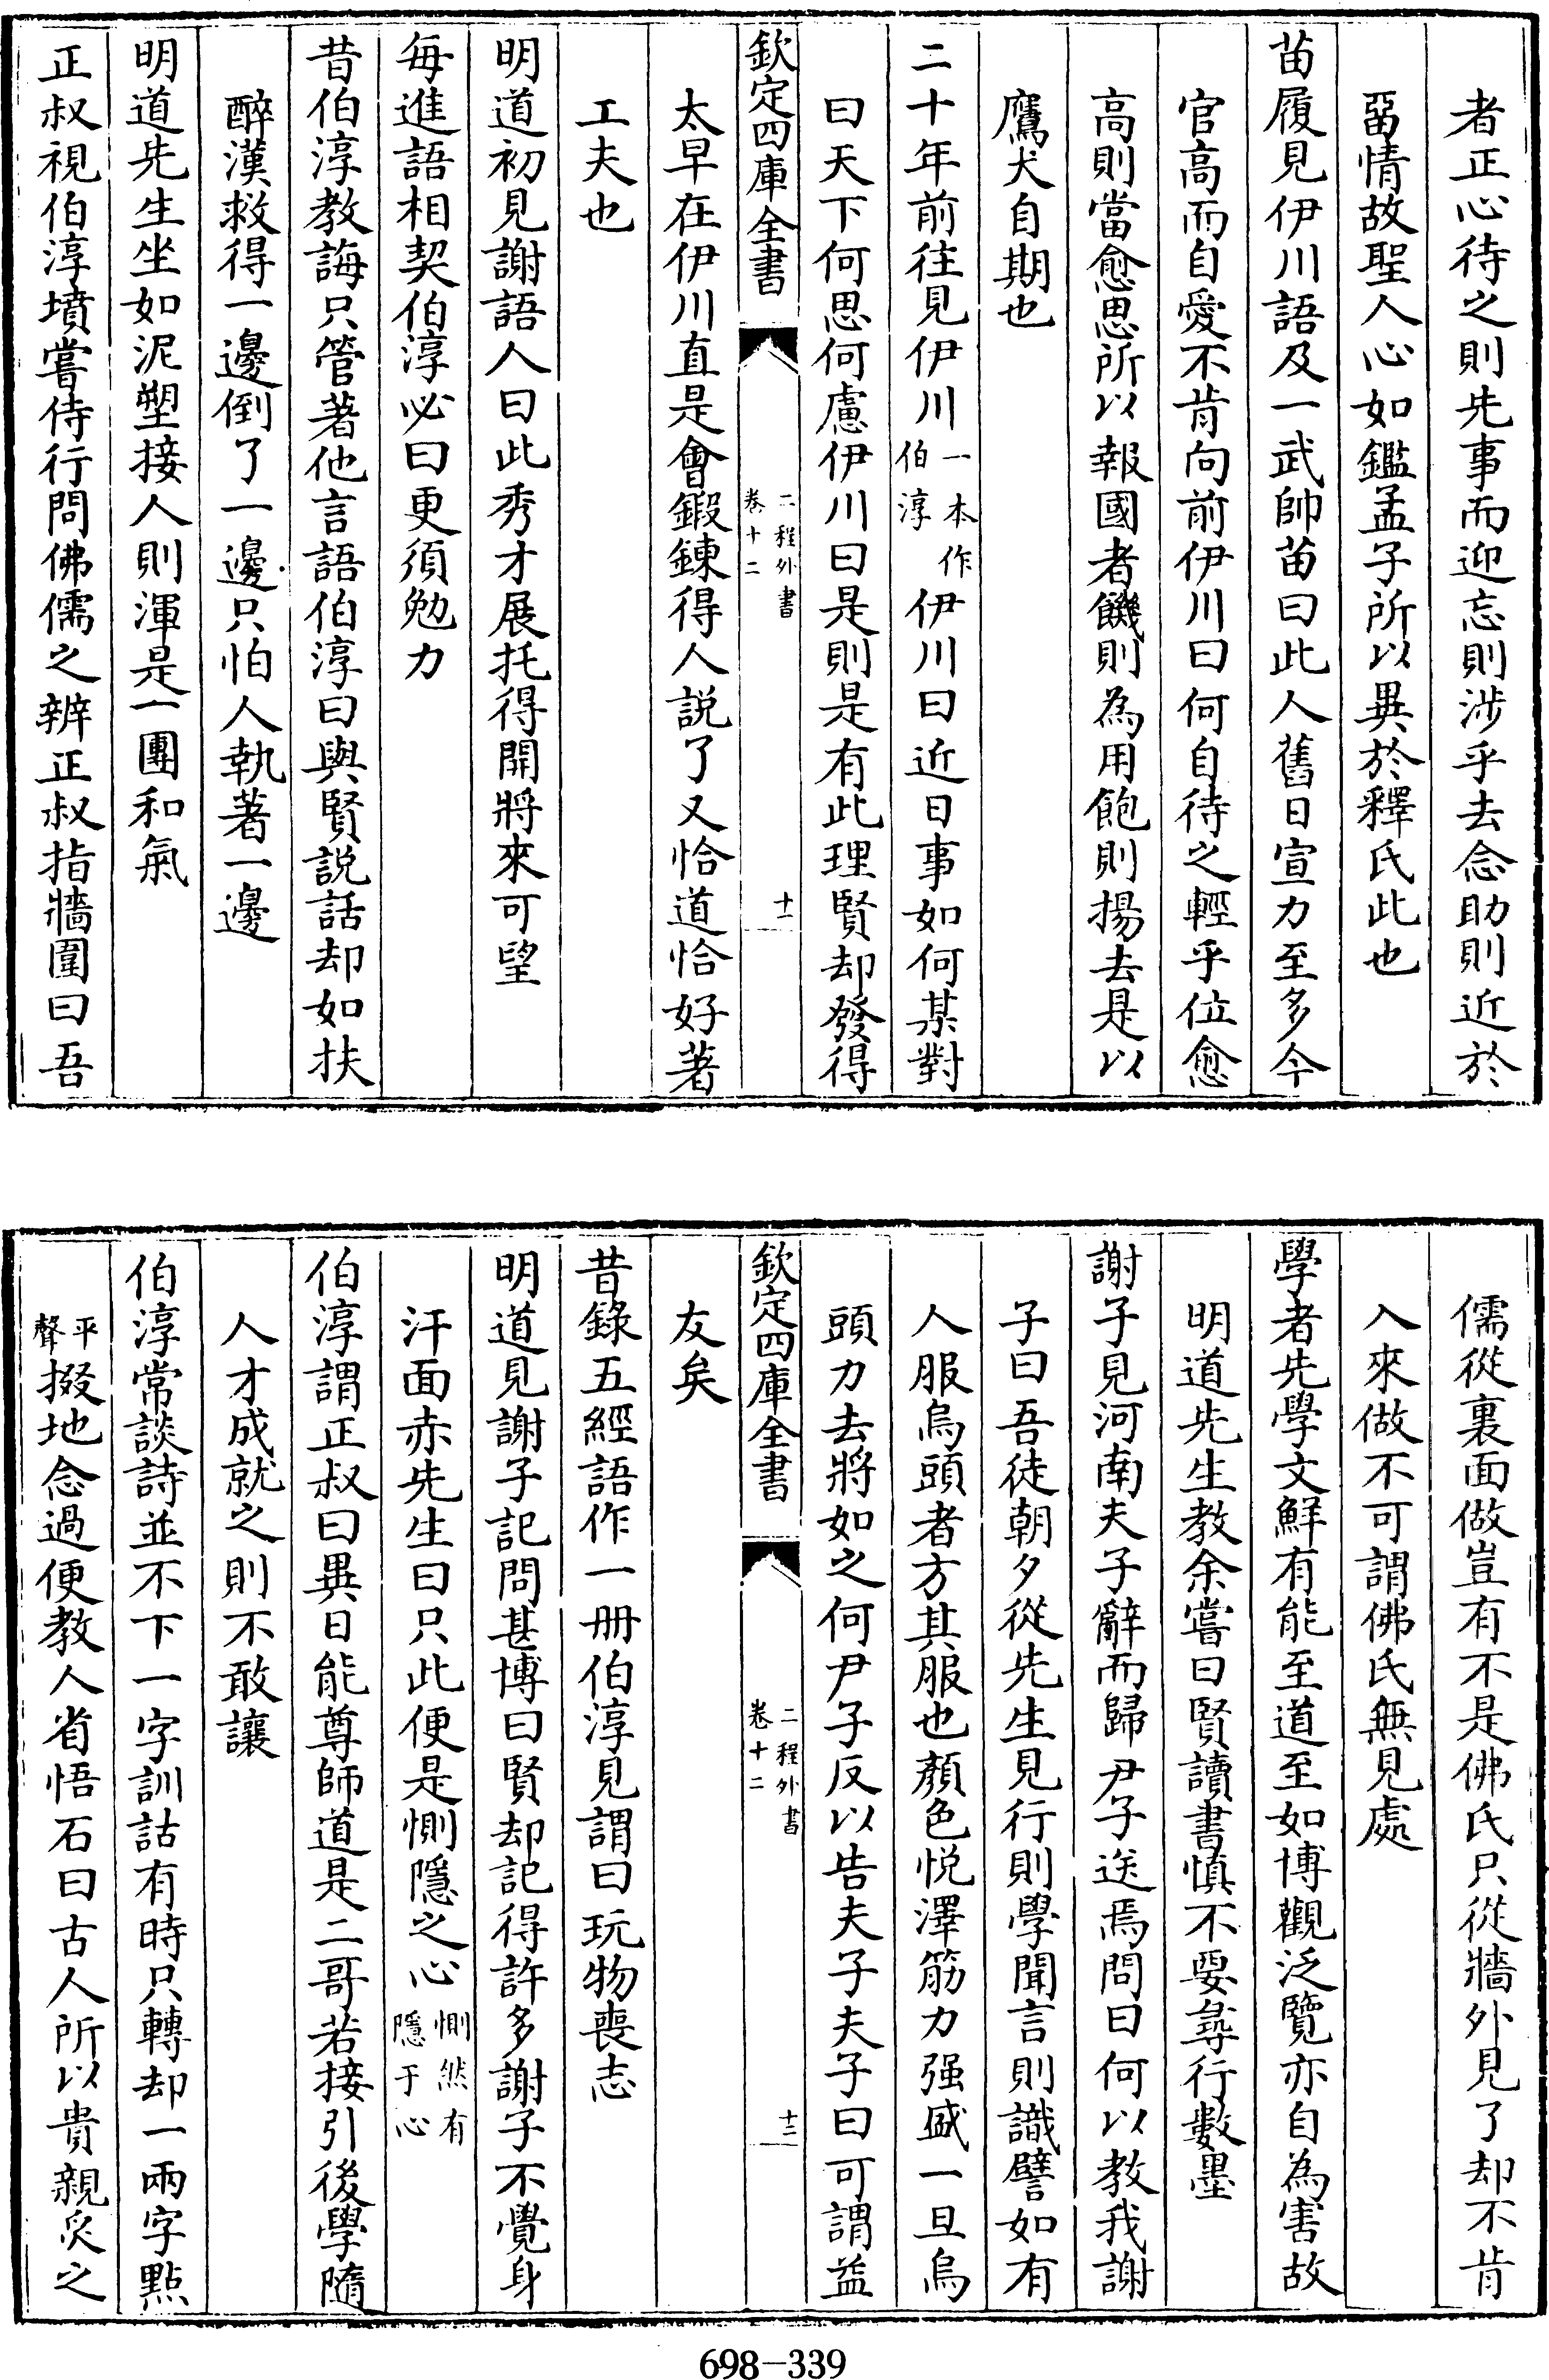 者正心待之則先事而迎忘則涉乎去念助則近於
畱情故聖人心如鑑孟子所以異於釋氏此也
苗履見伊川語及一武帥苗曰此人舊日宣力至多今
官高而自愛不肯向前伊川曰何自待之輕乎位愈
高則當愈思所以報國者饑則為用飽則揚去是以
鷹犬自期也
二十年前往見伊川一本作伯淳伊川曰近日事如何某對
曰天下何思何慮伊川曰是則是有此理賢却發得
欽定四庫全書 二程外書卷十二 十一
太早在伊川直是會鍛鍊得人説了又恰道恰好著
工夫也
明道初見謝語人曰此秀才展托得開將來可望
每進語相契伯淳必曰更須勉力
昔伯淳教誨只管著他言語伯淳曰與賢説話却如扶
醉漢救得一邊倒了一邊只怕人執著一邊
明道先生坐如泥塑接人則渾是一團和氣
正叔視伯淳墳嘗侍行問佛儒之辨正叔指牆圍曰吾
儒從裏面做豈有不是佛氏只從牆外見了却不肯
入來做不可謂佛氏無見處
學者先學文鮮有能至道至如博觀泛覽亦自為害故
明道先生教余嘗曰賢讀書慎不要尋行數墨
謝子見河南夫子辭而歸尹子送焉問曰何以教我謝
子曰吾徒朝夕從先生見行則學聞言則識譬如有
人服烏頭者方其服也顏色悦澤筋力强盛一旦烏
頭力去將如之何尹子反以告夫子夫子曰可謂益
欽定四庫全書 二程外書卷十二 十二
友矣
昔錄五經語作一册伯淳見謂曰玩物喪志
明道見謝子記問甚博曰賢却記得許多謝子不覺身
汗面赤先生曰只此便是惻隱之心惻然有隱于心
伯淳謂正叔曰異日能尊師道是二哥若接引後學隨
人才成就之則不敢讓
伯淳常談詩並不下一字訓詁有時只轉却一兩字點
平聲掇地念過便教人省悟石曰古人所以貴親炙之
698-339